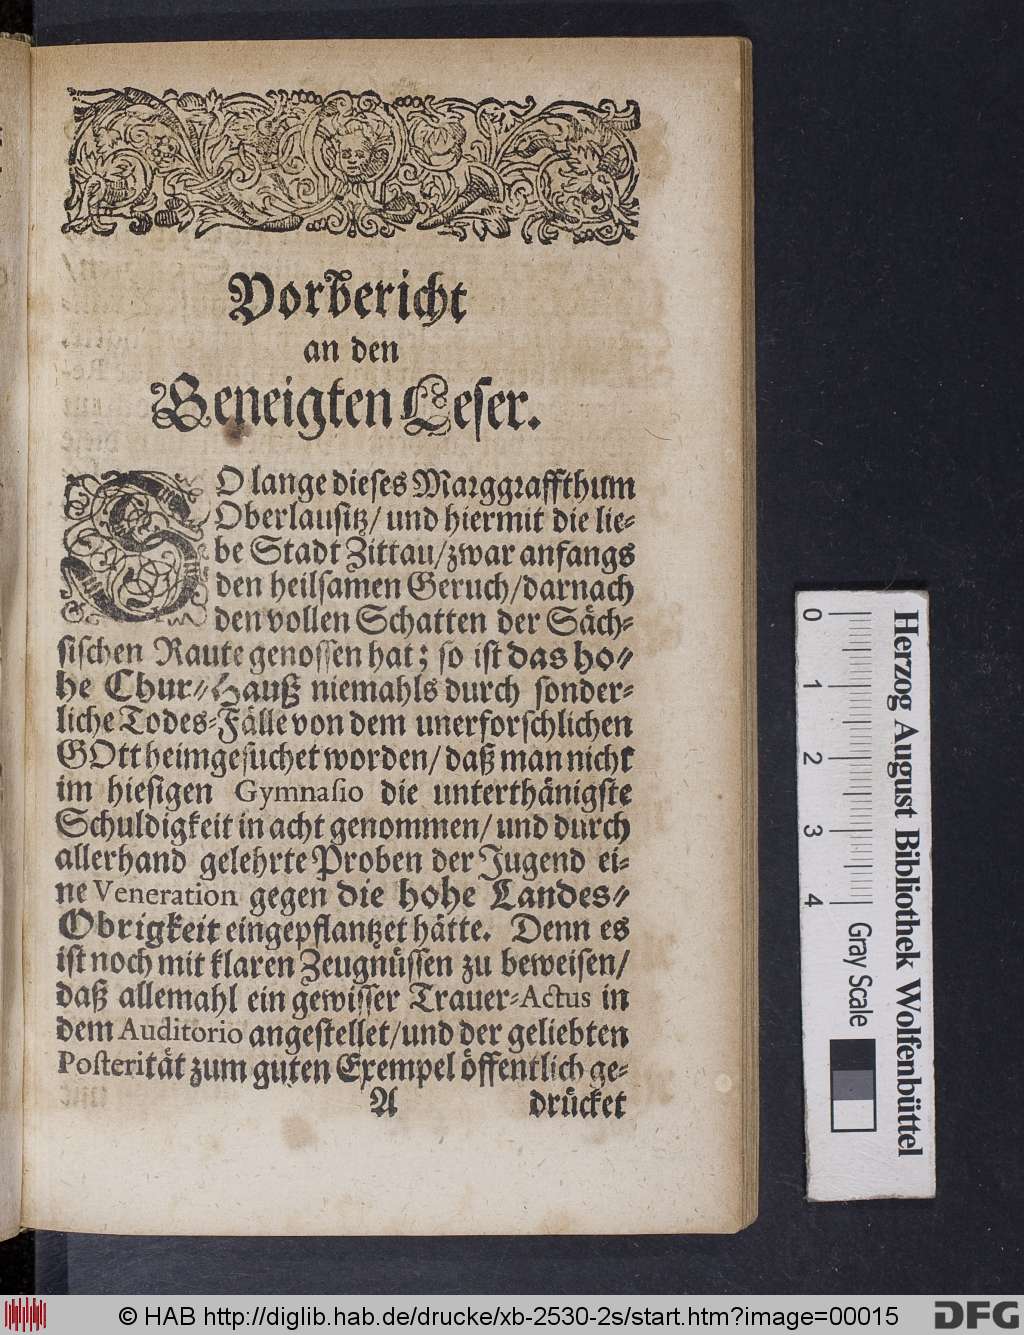 Vorbericht
an den
Geneigten Leser.
SO lange dieses Marggraffthum
Oberlausitz/ und hiermit die lie-
be Stadt Zittau/zwar anfangs
den heilsamen Geruch/darnach
den vollen Schatten der Säch-
sischen Raute genossen hat; so ist das ho-
he Chur-Hauß niemahls durch sonder-
liche Todes-Fälle von dem unerforschlichen
GOtt heimgesuchet worden/ daß man nicht
im hiesigen Gymnasio die unterthänigste
Schuldigkeit in acht genommen/ und durch
allerhand gelehrte Proben der Jugend ei-
ne Veneration gegen die hohe Landes-
Obrigkeit eingepflantzet hätte. Denn es
ist noch mit klaren Zeugnüssen zu beweisen/
daß allemahl ein gewisser Trauer-Actus in
dem Auditorio angestellet/und der geliebten
Posterität zum guten Exempel öffentlich ge-
A drücket
0 1 2 3 4
Gray Scale
Herzog August Bibliothek Wolfenbüttel
© HAB http://diglib.hab.de/drucke/xb-2530-2s/start.htm?image=00015
DFG